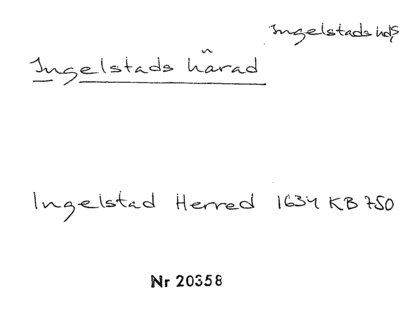 Ingelstads hd
Ingelstads härad
Ingelstad Herred 1634 KB 750
Nr 20358